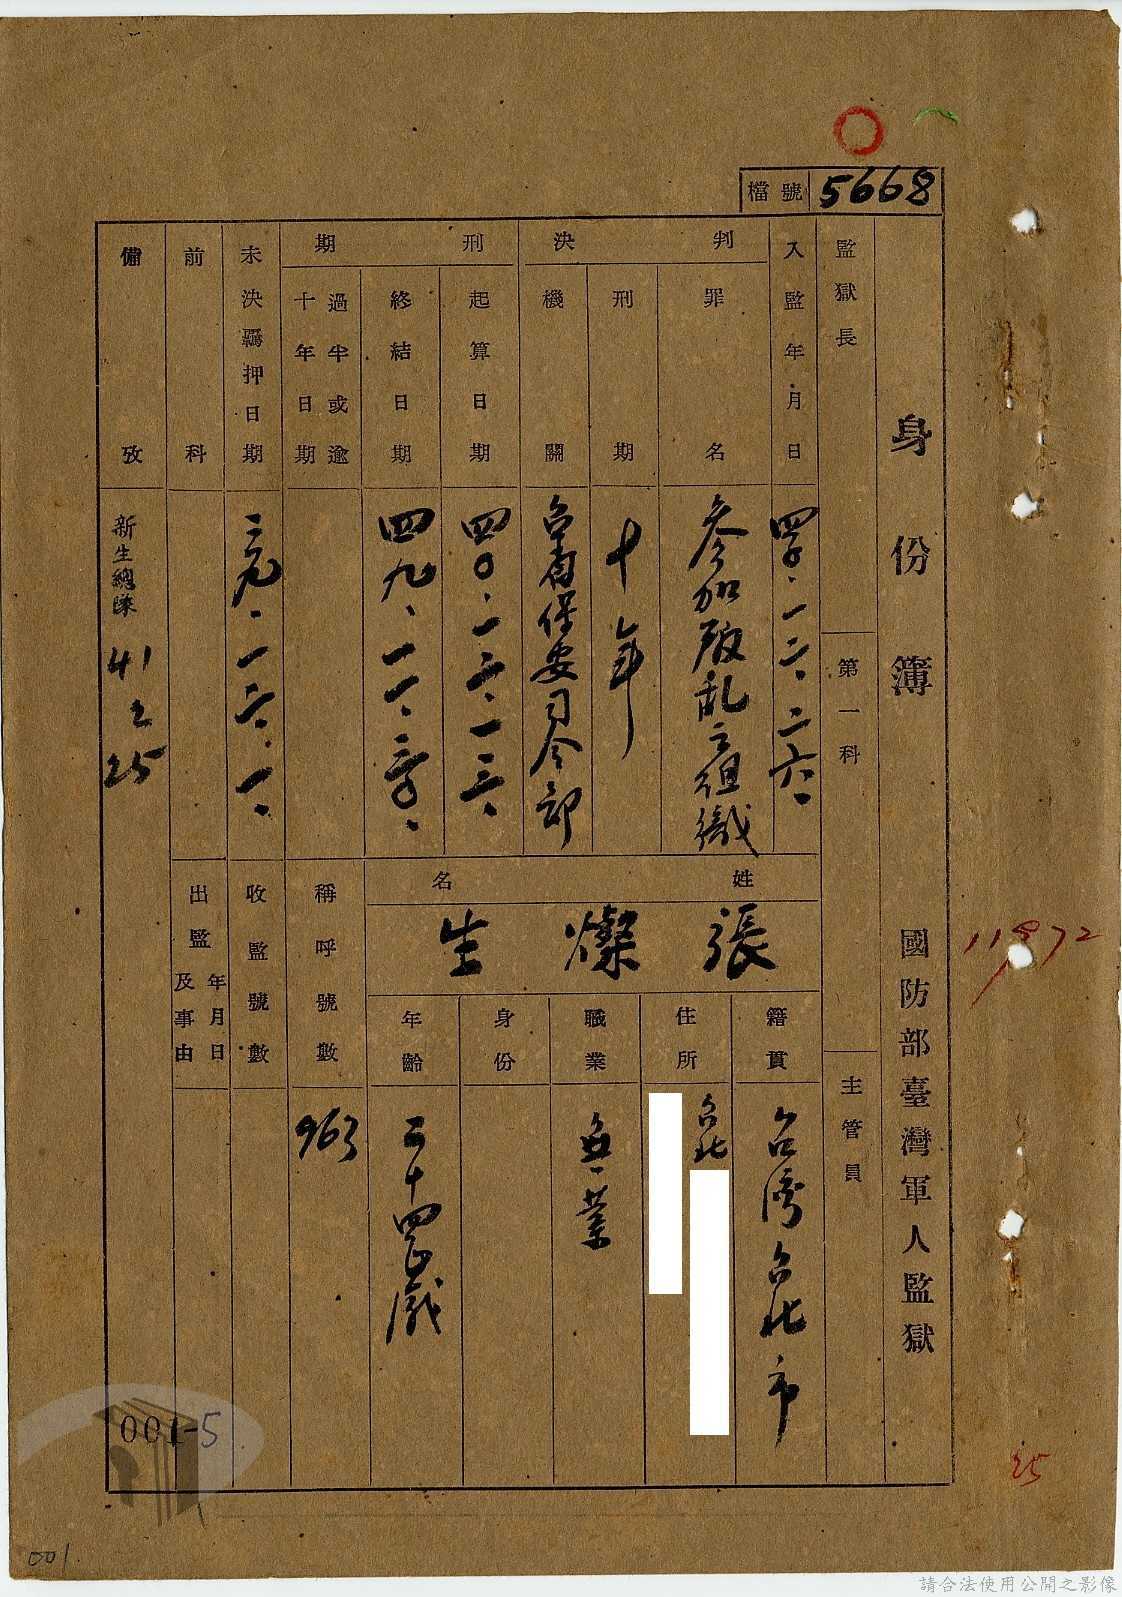 檔號 5668
身份簿 國防部臺灣軍人監獄
監獄長
第一科
主管員
入監年月日
四〇、一二、二六、
判決
罪名
參加叛乱之組織
刑期
十年
機關
台省保安司令部
刑期
起算日期
四〇、一二、一三、
終結日期
四九、一一、三〇、
過半或逾十年日期
未決羈押日期
三九、一二、一、
前科
備攷
新生總隊
41
2
25
姓名
張燦生
籍貫
台灣台北市
住所
台北
職業
無業
身份
年齡
二十四歲
稱呼號數
963
收監號數
出監年月日及事由
11872
25
001-5
001.
請合法使用公開之影像